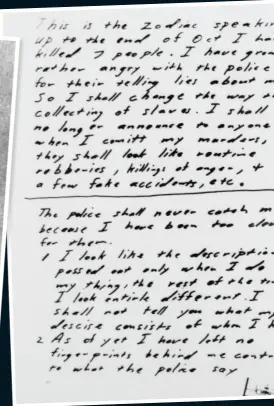 This is the Zodiac speaki
up to the end of Oct I ha
killed 7 people. I have gro
rather angry with the police
for their telling lies about m
So I shall change the way t
collecting of slaves. I shall
no longer announce to anyone
when I comitt my murders,
they shall look like routine
robberies, killings of anger, +
a few fake accidents, etc.
The police shall never catch m
because I have been too clev
for them.
1 I look like the description
passed out only when I do
my thing, the rest of the ti
I look entirle different. I
shall not tell you what my
descise consists of when I k
2 As of yet I have left no
fingerprints behind me contr
to what the police say